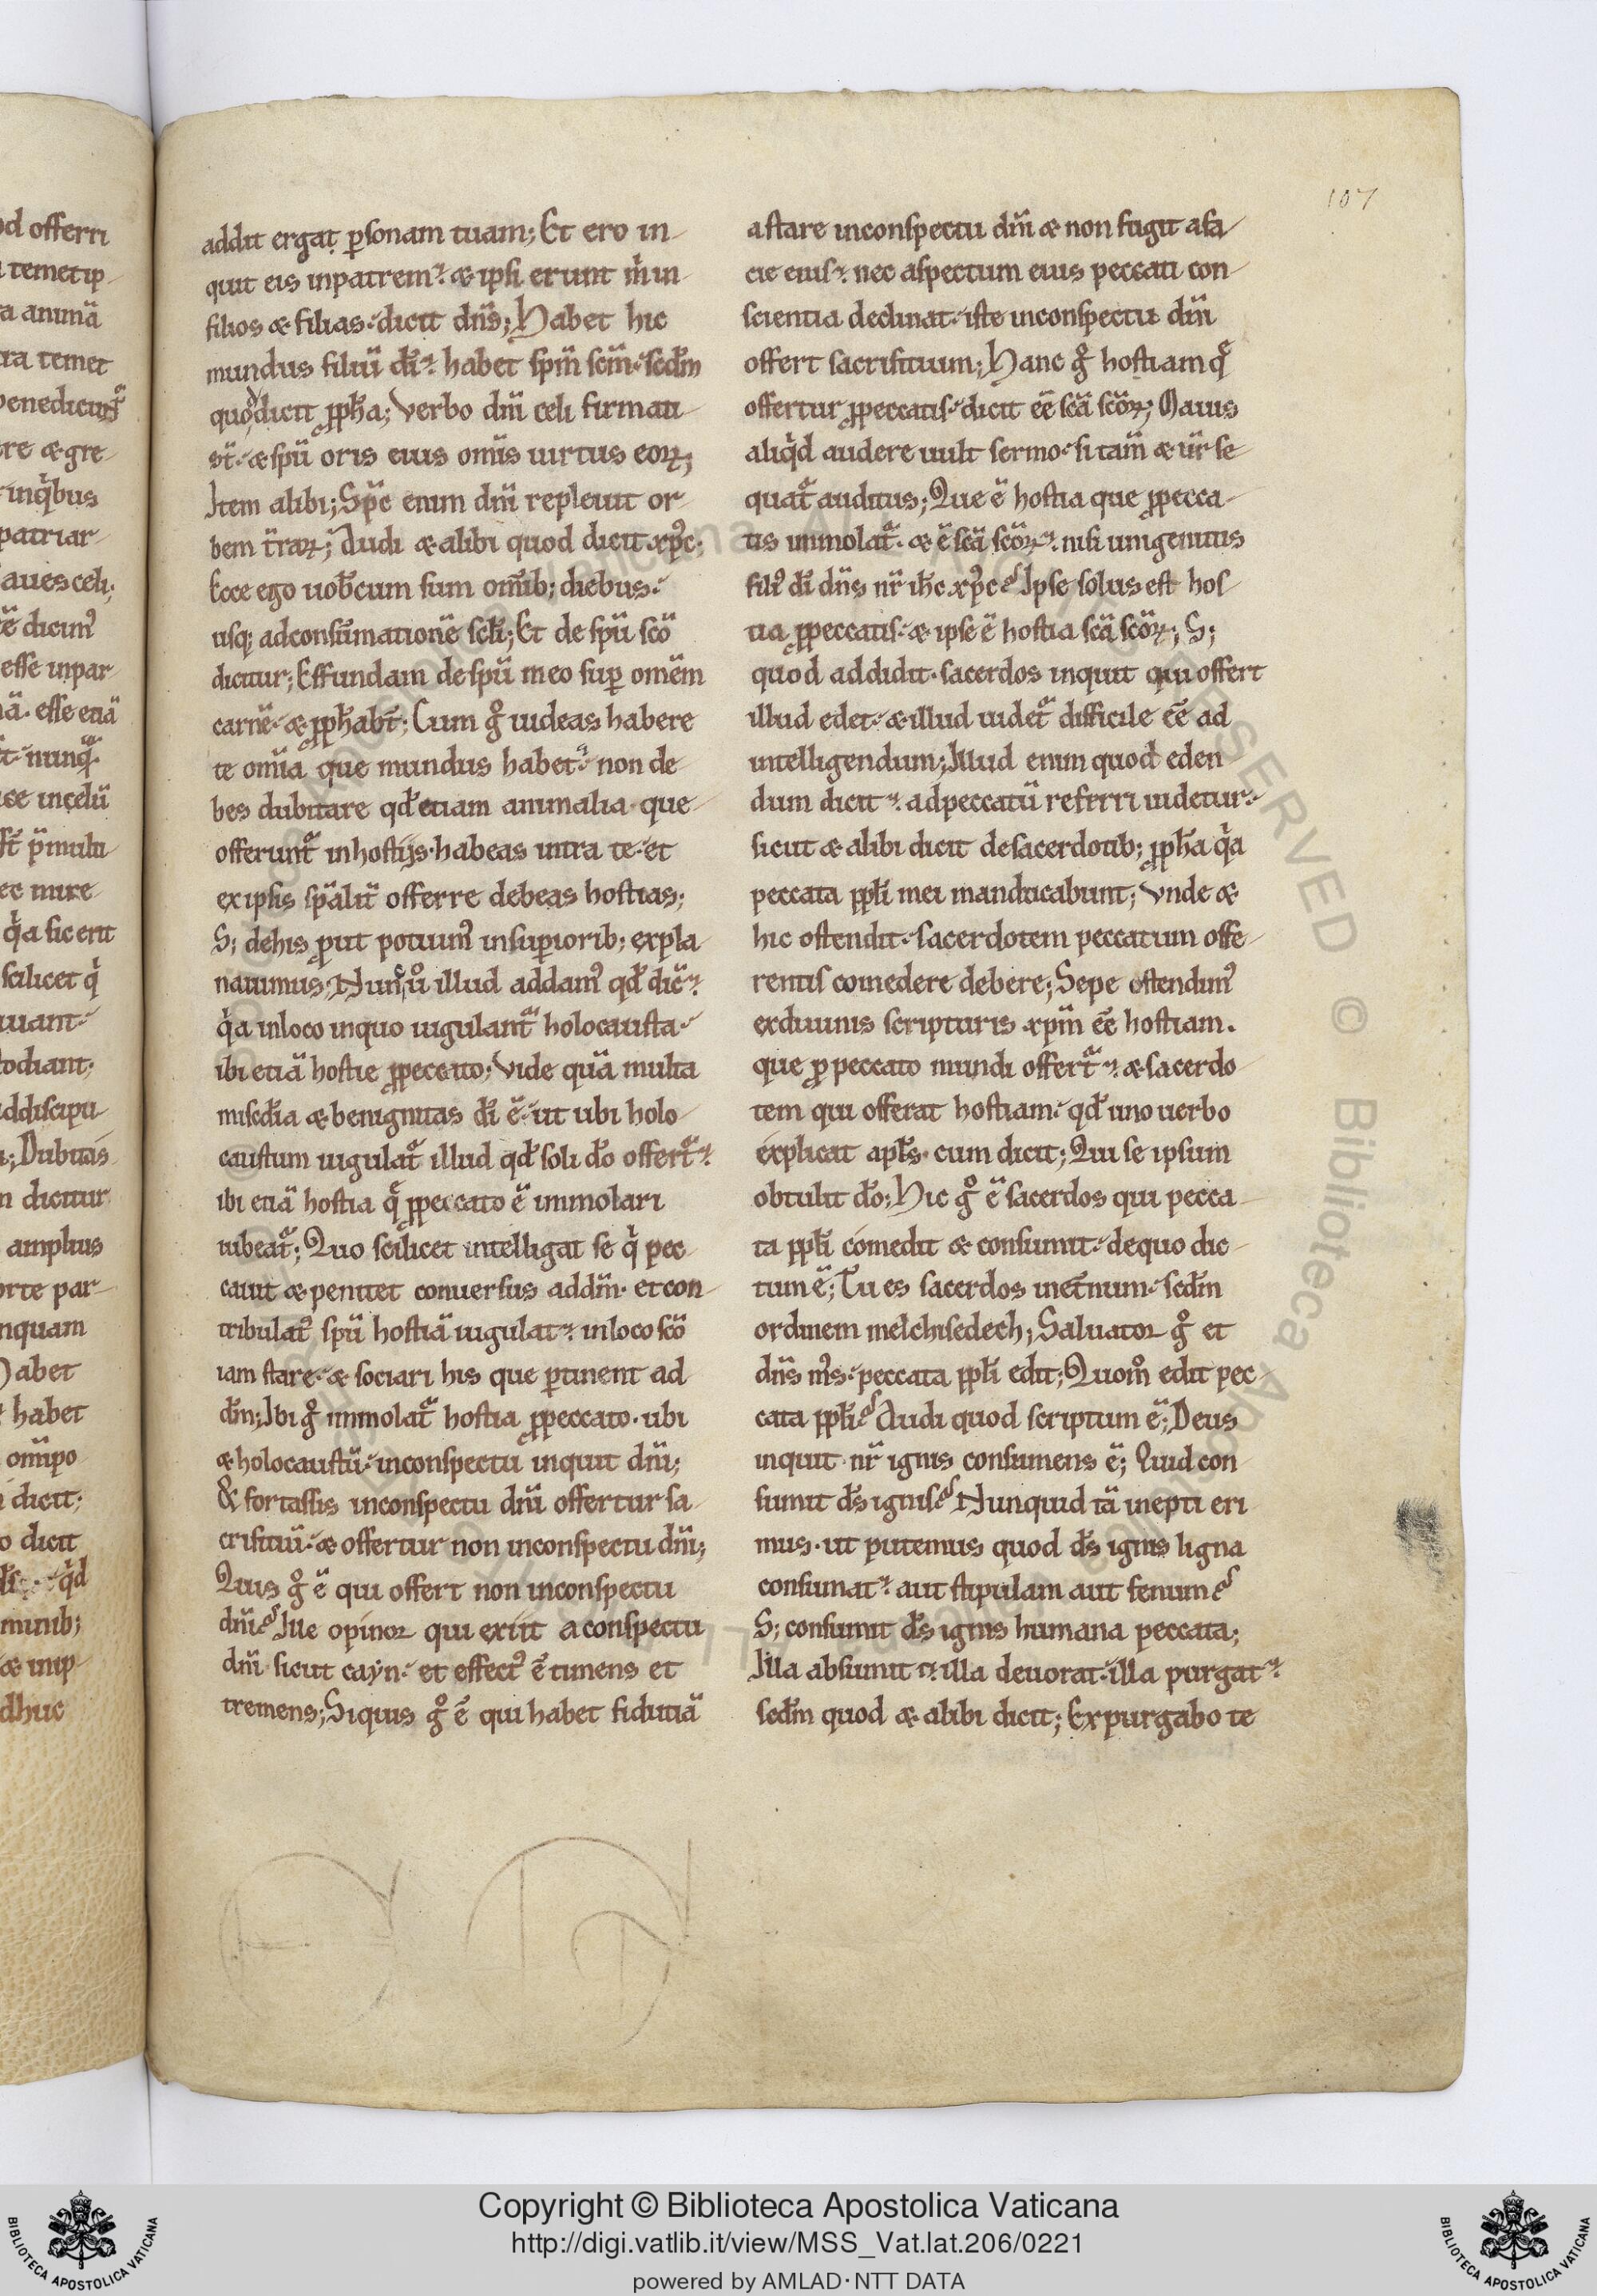 107
addit ergat ꝑsonam tuam; Et ero in-
quit eis inpatrem. & ipsi erunt m̄ in-
filios & filias. dicit dn̄s; Habet hic
mundus filiū dī. habet spm̄ scm̄. scd̄m
quod dicit ꝓph̄a; Verbo dn̄i celi firmati
st̄. & spū oris eius om̄is uirtus eoꝝ;
Item alibi; Sp̄c enim dn̄i repleuit or-
bem t̄raꝝ; Audi & alibi quod dicit xp̄c;
Ecce ego uob̄cum sum om̄ib; diebus.
usq; adconsūmationē scl̄i; Et de spū scō
dicitur; Effundam de spū meo suꝑ omēm
carnē. & ꝓph̄abt̄; Cum g̊ uideas habere
te om̄ia que mundus habet. non de
bes dubitare qd̄ etiam animalia que-
offerunt᷑ inhostijs. habeas intra te. et
ex ipsis spālit̄ offerre debeas hostias;
S; dehis ꝓut potuim᷒ insuꝑiorib; expla-
nauimus; Nunc ů illud addam᷒ qd̄ dic̄.
qͥa inloco inquo iugulant᷑ holocausta.
ibi etiā hostie ꝓpeccato; Vide quā multa
misc̄dia & benignitas dī ē. ut ubi holo-
caustum iugulat᷑ illud qd̄ soli dō offert᷑.
ibi etiā hostia q̄ ꝓpeccato ē immolari
iubeat᷑; Quo scilicet intelligat se qͥ pec-
cauit & penitet conuersus addn̄m. et con-
tribulat᷒ spū hostiā iugulat. inloco scō
iam stare. & sociari his que ꝑtinent ad
dm̄; Ibi g̊ immolat᷑ hostia ꝓpeccato. ubi
& holocaustū. inconspectu inquit dn̄i;
& fortassis inconspectu dn̄i offertur sa-
crifitiū. & offertur non inconspectu dn̄i;
Quis g̊ ē qui offert non inconspectu
dn̄i? Ille opinor qui exiit aconspectu
dn̄i sicut cayn. et effect᷒ ē timens et
tremens; Siquis g̊ ē qui habet fidutiā
astare inconspectu dn̄i & non fugit afa-
cie eius. nec aspectum eius peccati con-
scientia declinat. iste inconspectu dn̄i
offert sacrifitium; Hanc g̊ hostiam q̄
offertur ꝓpeccatis. dicit ēē scā scōꝝ; Maius
aliqͥd audere uult sermo. si tam̄ & ur̄ se-
quat᷑ auditus; Que ē hostia que ꝓpecca-
tis immolat᷑. & ē scā scōꝝ. nisi unigenitus
fili᷒ dī dn̄s nr̄ ih̄c xp̄c? Ipse solus est hos-
tia ꝓpeccatis. & ipse ē hostia scā scōꝝ; S;
quod addidit. sacerdos inquit qui offert
illud edet. & illud uidet᷑ difficile ēē ad
intelligendum; Illud enim quod eden
dum dicit. adpeccatū referri uidetur.
sicut & alibi dicit desacerdotib; ꝓph̄a qͥa
peccata ppl̄i mei manducabunt; Vnde &
hic ostendit. sacerdotem peccatum offe-
rentis comedere debere; Sepe ostendim᷒
exdiuinis scripturis xpm̄ ēē hostiam.
que ꝓ peccato mundi offert᷑. & sacerdo-
tem qui offerat hostiam. qd̄ uno uerbo
explicat apl̄s. cum dicit; Qui se ipsum
obtulit dō; Hic g̊ ē sacerdos qui pecca-
ta ppl̄i comedit & consumit. dequo dic-
tum ē; Tu es sacerdos inet̄num. scd̄m
ordinem melchisedech; Saluator g̊ et
dn̄s m̄s. peccata ppl̄i edit; Quom̊ edit pec-
cata ppl̄i? Audi quod scriptum ē; Deus
inquit nr̄ ignis consumens ē; Quid con-
sumit ds̄ ignis? Nunquid itā inepti eri
mus. ut putemus quod ds̄ ignis ligna
consumat. aut stipulam aut fenum?
S; consumit ds̄ ignis humana peccata;
Illa absumit. illa deuorat. illa purgat.
scd̄m quod & alibi dicit; Expurgabo te
Copyright © Biblioteca Apostolica Vaticana
http://digi.vatlib.it/view/MSS_Vat.lat.206/0221
powered by AMLAD·NTT DATA
BIBLIOTECA APOSTOLICA VATICANA
BIBLIOTECA APOSTOLICA VATICANA